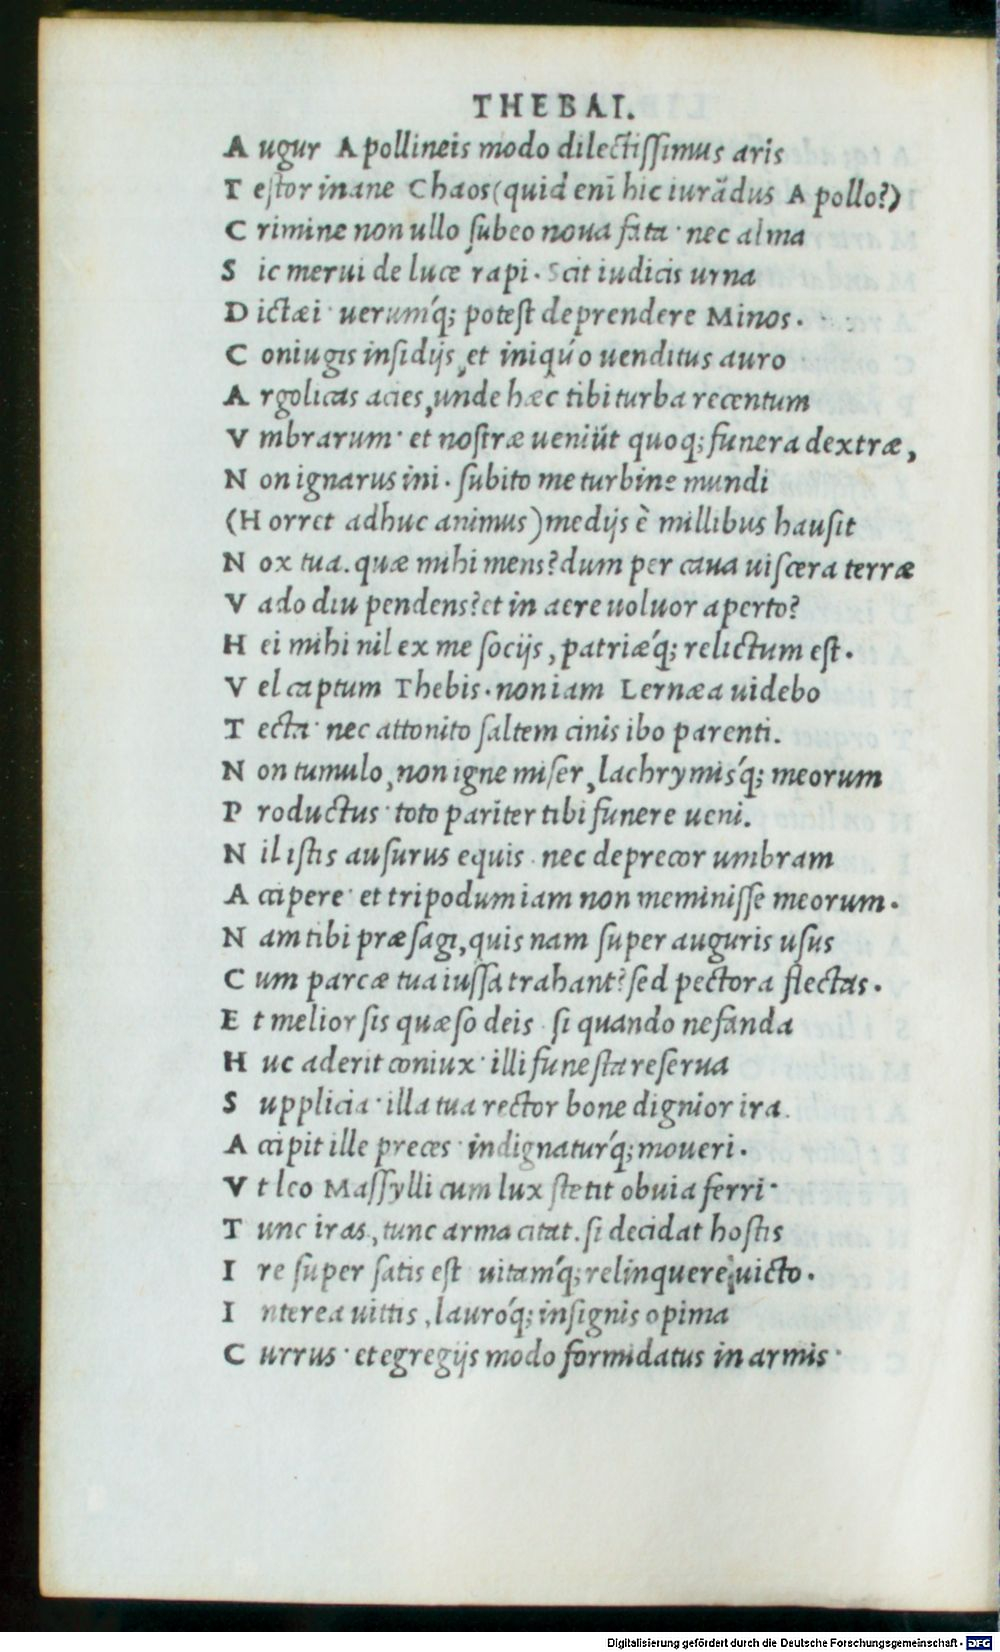 THEBAI.
A ugur Apollineis modo dilectissimus aris
T estor inane Chaos (quid enī hic iurādus Apollo?)
C rimine non ullo subeo noua fata · nec alma
S ic merui de luce rapi. Scit iudicis urna
D ictæi · uerumq́; potest deprendere Minos.
C oniugis insidijs, et iniquo uenditus auro
A rgolicas acies, unde hæc tibi turba recentum
V mbrarum · et nostræ ueniūt quoq; funera dextræ,
N on ignarus ini. subito me turbine mundi
(H orret adhuc animus) medijs è millibus hausit
N ox tua. quæ mihi mens? dum per caua uiscera terræ
V ado diu pendens? et in aere uoluor aperto?
H ei mihi nil ex me socijs, patriæq́; relictum est.
V el captum Thebis. non iam Lernæa uidebo
T ecta · nec attonito saltem cinis ibo parenti.
N on tumulo, non igne miser, lachrymisq́; meorum
P roductus · toto pariter tibi funere ueni.
N il istis ausurus equis · nec deprecor umbram
A ccipere · et tripodum iam non meminisse meorum.
N am tibi præsagi, quis nam super auguris usus
C um parcæ tua iussa trahant? sed pectora flectas.
E t melior sis quæso deis · si quando nefanda
H uc aderit coniux · illi funesta reserua
S upplicia · illa tua rector bone dignior ira.
A ccipit ille preces · indignaturq́; moueri.
V t leo Massylli cum lux stetit obuia ferri ·
T unc iras, tunc arma citat. si decidat hostis
I re super satis est uitamq́; relinquere uicto.
I nterea uittis, lauroq́; insignis opima
C urrus · et egregijs modo formidatus in armis ·
Digitalisierung gefördert durch die Deutsche Forschungsgemeinschaft - DFG